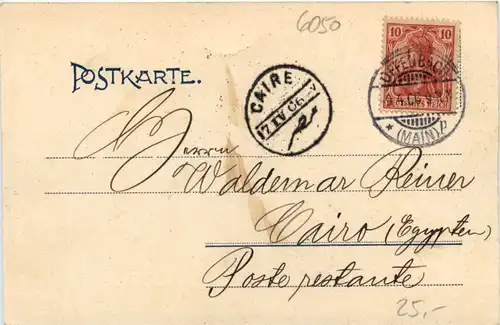 6050
POSTKARTE.
10 10
OFFENBACH
* (MAIN)
CAIRE
17 IV 06
Herrn
Waldemar Reiner
Cairo (Egypten)
Poste restante
25,-